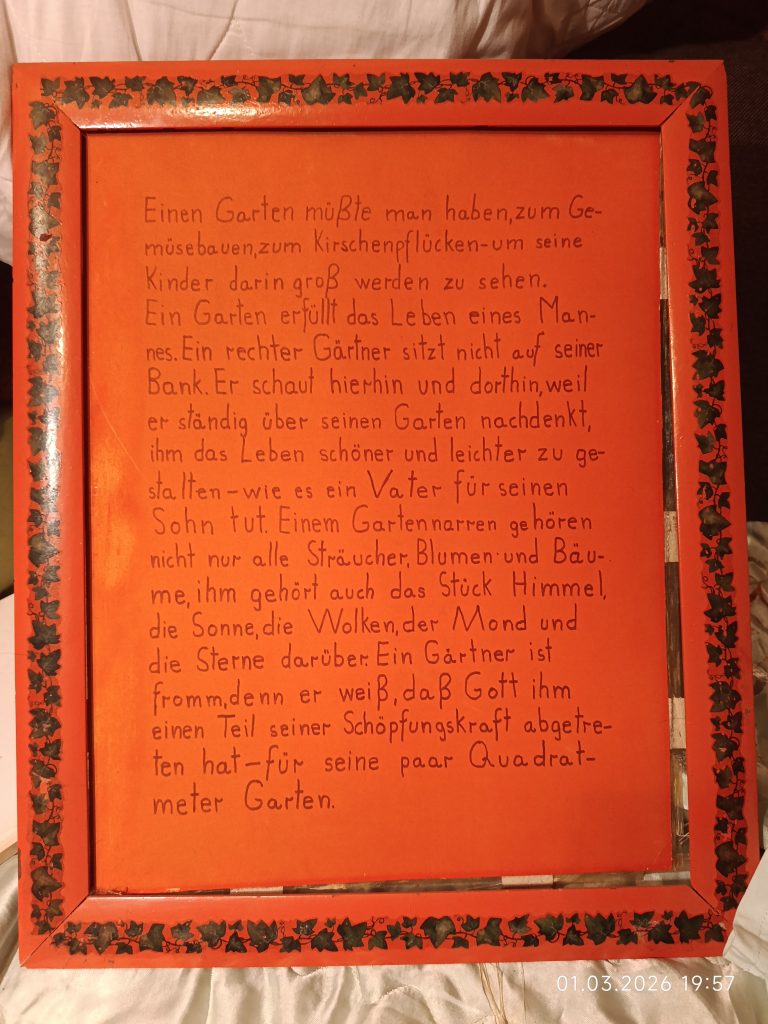 Einen Garten müßte man haben, zum Ge-
müsebauen, zum Kirschenpflücken - um seine
Kinder darin groß werden zu sehen.
Ein Garten erfüllt das Leben eines Man-
nes. Ein rechter Gärtner sitzt nicht auf seiner
Bank. Er schaut hierhin und dorthin, weil
er ständig über seinen Garten nachdenkt,
ihm das Leben schöner und leichter zu ge-
stalten – wie es ein Vater für seinen
Sohn tut. Einem Gartennarren gehören
nicht nur alle Sträucher, Blumen und Bäu-
me, ihm gehört auch das Stück Himmel,
die Sonne, die Wolken, der Mond und
die Sterne darüber. Ein Gärtner ist
fromm, denn er weiß, daß Gott ihm
einen Teil seiner Schöpfungskraft abgetre-
ten hat – für seine paar Quadrat-
meter Garten.
01.03.2026 19:57